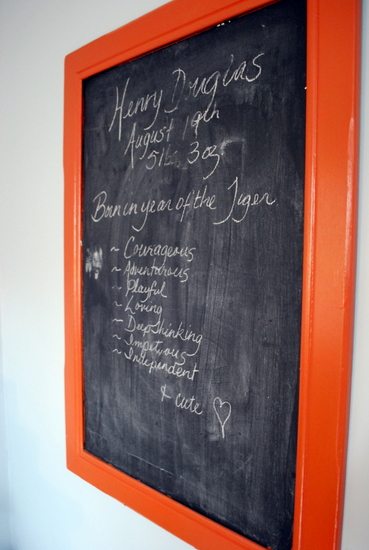 Henry Douglas
August 19th
5 lbs. 3 oz.
Born in year of the Tiger
~ Courageous
~ Adventurous
~ Playful
~ Loving
~ Deep Thinking
~ Impetuous
~ Independent
& cute ♡